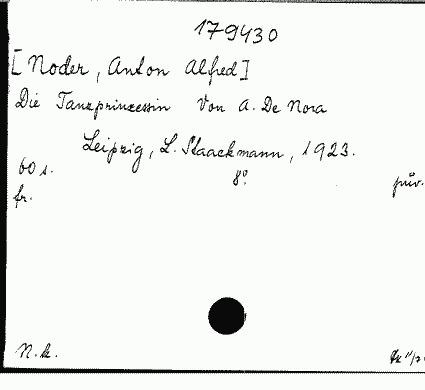 179430
[Noder, Anton Alfred]
Die Tanzprinzessin Von A. De Nora
Leipzig, L. Staackmann, 1923.
60 s. 8° pův.
fr.
N.k.